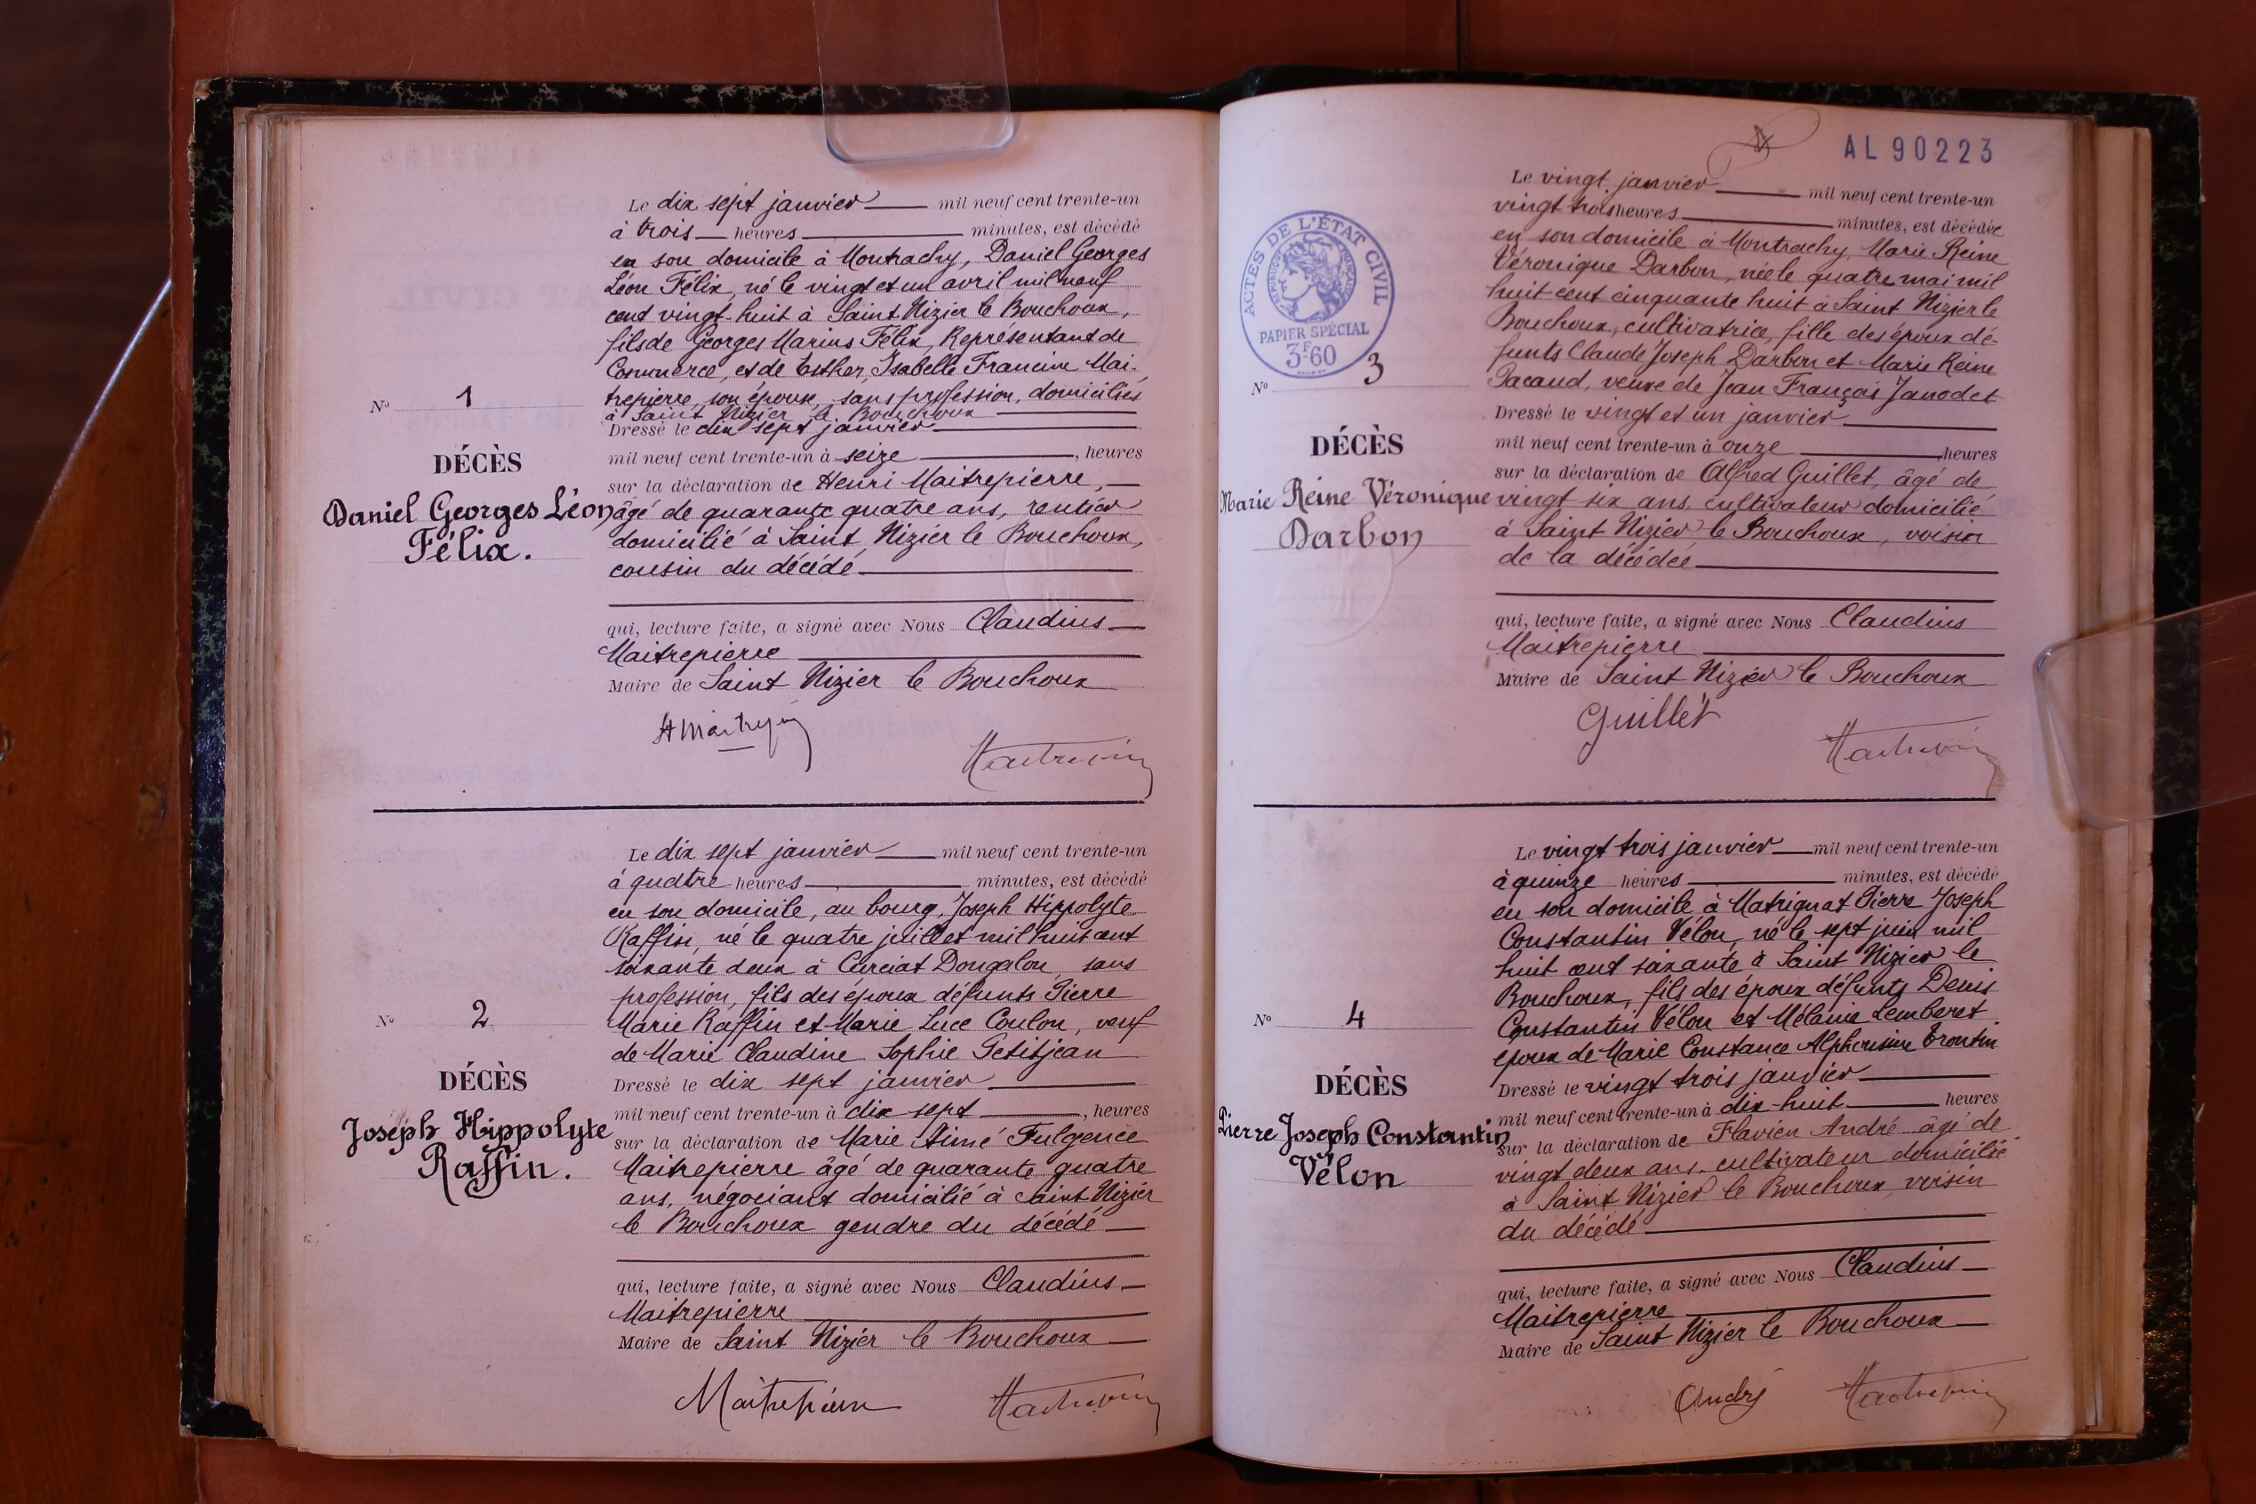 Le dix sept janvier mil neuf cent trente-un
à trois heures minutes, est décédé
en son domicile à Montrachy, Daniel Georges
Léon Félix, né le vingt et un avril mil neuf
cent vingt-huit à Saint Nizier le Bouchoux,
fils de Georges Marius Félix, Représentant de
Commerce, et de Esther, Isabelle Francine Mai-
trepierre, son épouse, sans profession, domiciliés
à Saint Nizier le Bouchoux
Nº 1
Dressé le dix sept janvier
DÉCÈS
mil neuf cent trente-un à seize, heures
sur la déclaration de Henri Maitrepierre,
Daniel Georges Léon
Félix.
âgé de quarante quatre ans, rentier
domicilié à Saint Nizier le Bouchoux,
cousin du décédé
qui, lecture faite, a signé avec Nous Claudius
Maitrepierre
Maire de Saint Nizier le Bouchoux
Le dix sept janvier mil neuf cent trente-un
à quatre heures minutes, est décédé
en son domicile, au bourg, Joseph Hippolyte
Raffin, né le quatre juillet mil huit cent
soixante deux à Curciat Dongalon, sans
profession, fils des époux défunts Pierre
Marie Raffin et Marie Luce Coulon, veuf
de Marie Claudine Sophie Petitjean
Nº 2
Dressé le dix sept janvier
DÉCÈS
mil neuf cent trente-un à dix-sept, heures
Joseph Hippolyte
Raffin.
sur la déclaration de Marie Aimé Fulgence
Maitrepierre âgé de quarante quatre
ans, négociant domicilié à Saint Nizier
le Bouchoux gendre du décédé
qui, lecture faite, a signé avec Nous Claudius
Maitrepierre
Maire de Saint Nizier le Bouchoux
Maitrepierre
AL 90223
ACTES DE L'ÉTAT CIVIL
PAPIER SPÉCIAL
3F60
Le vingt janvier mil neuf cent trente-un
vingt trois heures minutes, est décédée
en son domicile à Montrachy, Marie Reine
Véronique Darbon, née le quatre mai mil
huit cent cinquante huit à Saint Nizier le
Bouchoux, cultivatrice, fille des époux dé-
funts Claude Joseph Darbon et Marie Reine
Pacaud, veuve de Jean François Janodet
Nº 3
Dressé le vingt et un janvier
DÉCÈS
mil neuf cent trente-un à onze, heures
sur la déclaration de Alfred Guillet, âgé de
Marie Reine Véronique
Darbon
vingt six ans, cultivateur domicilié
à Saint Nizier le Bouchoux, voisin
de la décédée
qui, lecture faite, a signé avec Nous Claudius
Maitrepierre
Maire de Saint Nizier le Bouchoux
Guillet
Le vingt trois janvier mil neuf cent trente-un
à quinze heures minutes, est décédé
en son domicile à Matrignat Pierre Joseph
Constantin Vélon, né le sept juin mil
huit cent soixante à Saint Nizier le
Bouchoux, fils des époux défunts Denis
Constantin Vélon et Mélanie Lemberet
époux de Marie Constance Alphonsine Trontin
Nº 4
Dressé le vingt trois janvier
DÉCÈS
mil neuf cent trente-un à dix-huit heures
Pierre Joseph Constantin
Vélon
sur la déclaration de Flavien André âgé de
vingt deux ans, cultivateur domicilié
à Saint Nizier le Bouchoux voisin
du décédé
qui, lecture faite, a signé avec Nous Claudius
Maitrepierre
Maire de Saint Nizier le Bouchoux
André